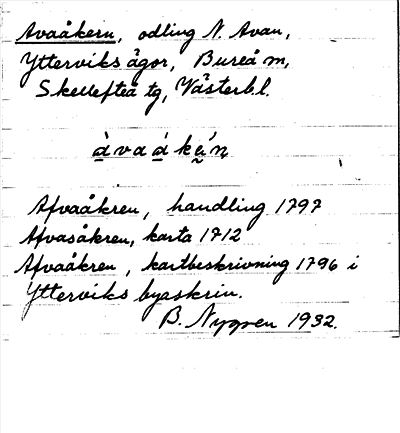 Avaåkern, odling N. Avan,
Ytterviks ägor, Bureå sn,
Skellefteå tg, Västerb.l.
àvaákän
Afvaåkren, handling 1797
Afvasåkren, karta 1712
Afvaåkren, kartbeskrivning 1796 i
Ytterviks byaskrin.
B. Nygren 1932.